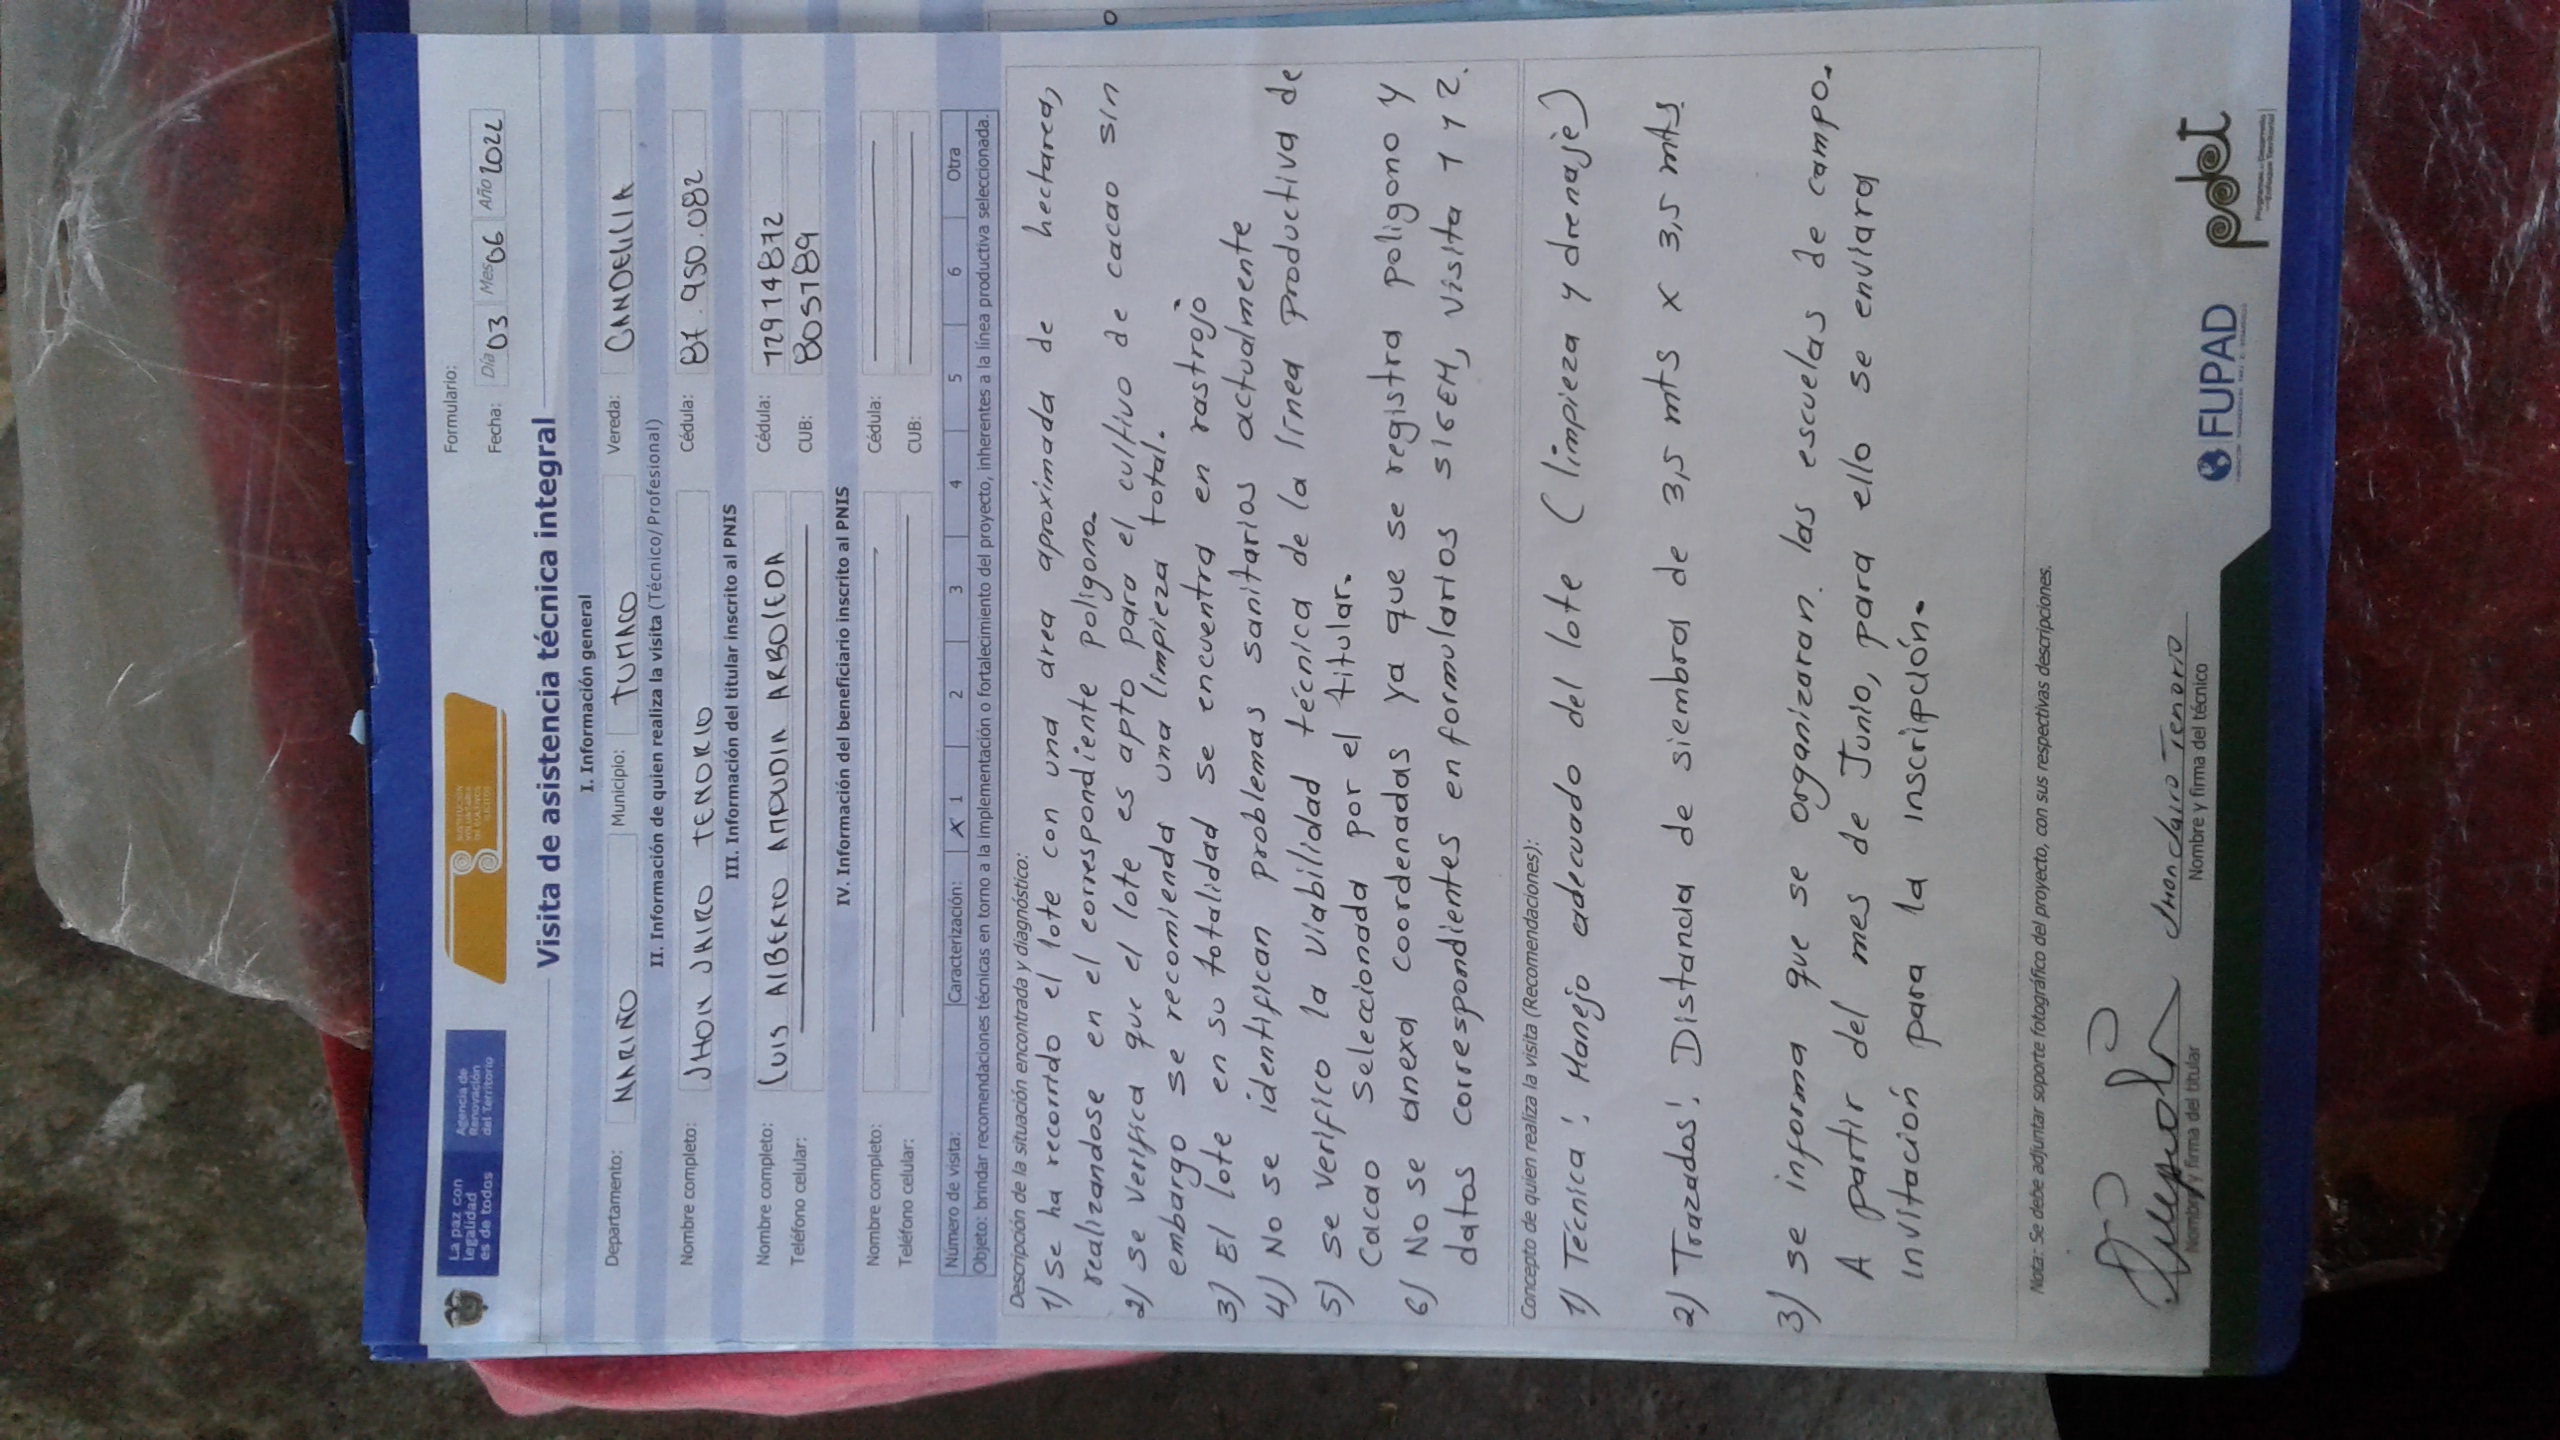 La paz con
legalidad
es de todos
Agencia de
Renovación
del Territorio
SUSTITUCIÓN
VOLUNTARIA
DE CULTIVOS
ILÍCITOS
Formulario:
Fecha: Día 03 Mes 06 Año 2022
Visita de asistencia técnica integral
I. Información general
Departamento: NARIÑO Municipio: TUMACO Vereda: CANDELILLA
II. Información de quien realiza la visita (Técnico/Profesional)
Nombre completo: JHON JAIRO TENORIO Cédula: 87.950.082
III. Información del titular inscrito al PNIS
Nombre completo: LUIS ALBERTO AMPUDIA ARBOLEDA Cédula: 12914872
Teléfono celular: CUB: 8051789
IV. Información del beneficiario inscrito al PNIS
Nombre completo: Cédula:
Teléfono celular: CUB:
Número de visita: Caracterización: X 1 2 3 4 5 6 Otra
Objeto: brindar recomendaciones técnicas en torno a la implementación o fortalecimiento del proyecto, inherentes a la línea productiva seleccionada.
Descripción de la situación encontrada y diagnóstico:
1) se ha recorrido el lote con una area aproximada de hectarea,
realizandose en el correspondiente poligono.
2) se verifica que el lote es apto para el cultivo de cacao sin
embargo se recomienda una limpieza total.
3) El lote en su totalidad se encuentra en rastrojo
4) No se identifican problemas sanitarios actualmente
5) se verifico la viabilidad técnica de la línea productiva de
Cacao seleccionada por el titular.
6) No se anexa coordenadas ya que se registra poligono y
datos correspondientes en formularios SIGEM, visita 1 y 2.
Concepto de quien realiza la visita (Recomendaciones):
1) Técnica: Manejo adecuado del lote (limpieza y drenaje)
2) Trazados: Distancia de siembra de 3,5 mts x 3,5 mts
3) se informa que se organizaran las escuelas de campo.
A partir del mes de Junio, para ello se enviara
invitación para la inscripción.
Nota: Se debe adjuntar soporte fotográfico del proyecto, con sus respectivas descripciones.
Jhon Jairo Tenorio
Nombre y firma del titular Nombre y firma del técnico
FUPAD
pdet